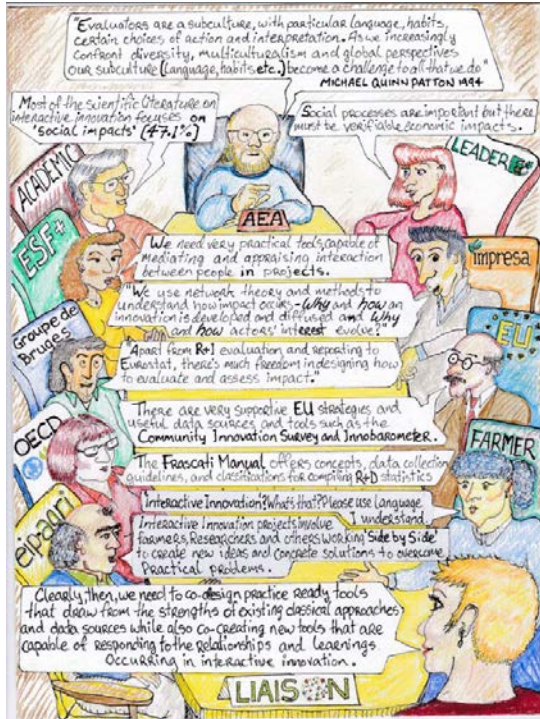 "Evaluators are a subculture, with particular language, habits,
certain choices of action and interpretation. As we increasingly
confront diversity, multiculturalism and global perspectives
our subculture (language, habits etc.) become a challenge to all that we do"
MICHAEL QUINN PATTON 1994
Most of the scientific literature on
interactive innovation focuses on
'social impacts' (47.1%)
Social processes are important but there
must be verifiable economic impacts.
ACADEMIC
LEADER
AEA
ESF+
We need very practical tools, capable of
mediating and appraising interaction
between people in projects.
impresa
"We use network theory and methods to
understand how impact occurs - Why and how an
innovation is developed and diffused and Why
and how actors' interest evolve?"
Groupe de
Bruges
EU
Apart from R+I evaluation and reporting to
Eurostat, there's much freedom in designing how
to evaluate and assess impact."
There are very supportive EU strategies and
useful data sources and tools such as the
Community Innovation Survey and Innobarometer.
OECD
FARMER
The Frascati Manual offers concepts, data collection
guidelines, and classifications for compiling R+D statistics
'Interactive Innovation'? What's that? Please use language
I understand.
eip-agri
Interactive Innovation projects involve
farmers, Researchers and others working 'Side by Side'
to create new ideas and concrete solutions to overcome
Practical problems.
Clearly, then, we need to co-design practice ready tools
that draw from the strengths of existing classical approaches
and data sources while also co-creating new tools that are
capable of responding to the relationships and learnings
Occurring in interactive innovation.
LIAISON